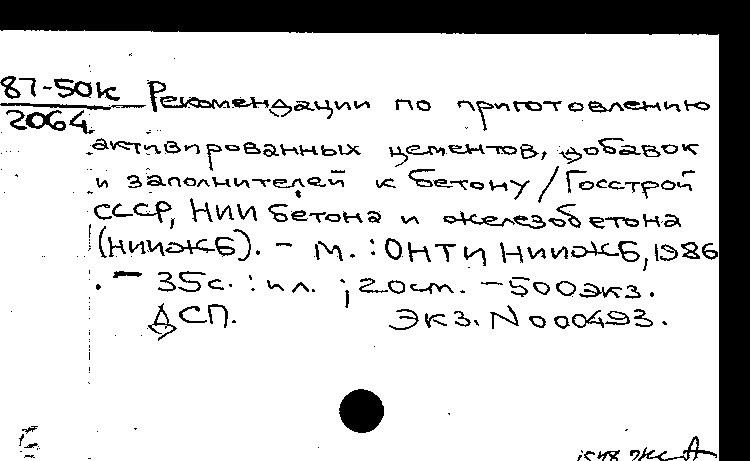 87-50к Рекомендации по приготовлению
2064
активированных цементов, добавок
и заполнителей к бетону / Госстрой
СССР, НИИ бетона и железобетона
(НИИЖБ). - М. : ОНТИ НИИЖБ, 1986
. - 35с. : ил. ; 20см. - 500экз.
ДСП. Экз. N 000493.